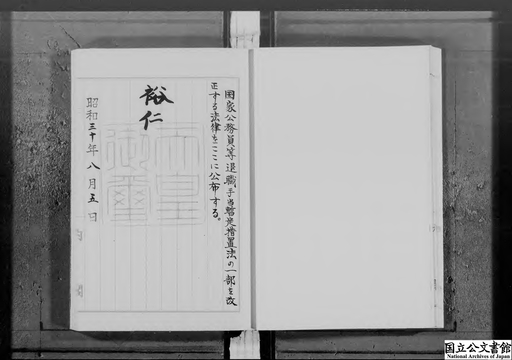 国家公務員等退職手当暫定措置法の一部を改
正する法律をここに公布する。
裕仁
天皇
御璽
昭和三十年八月五日
国立公文書館
National Archives of Japan